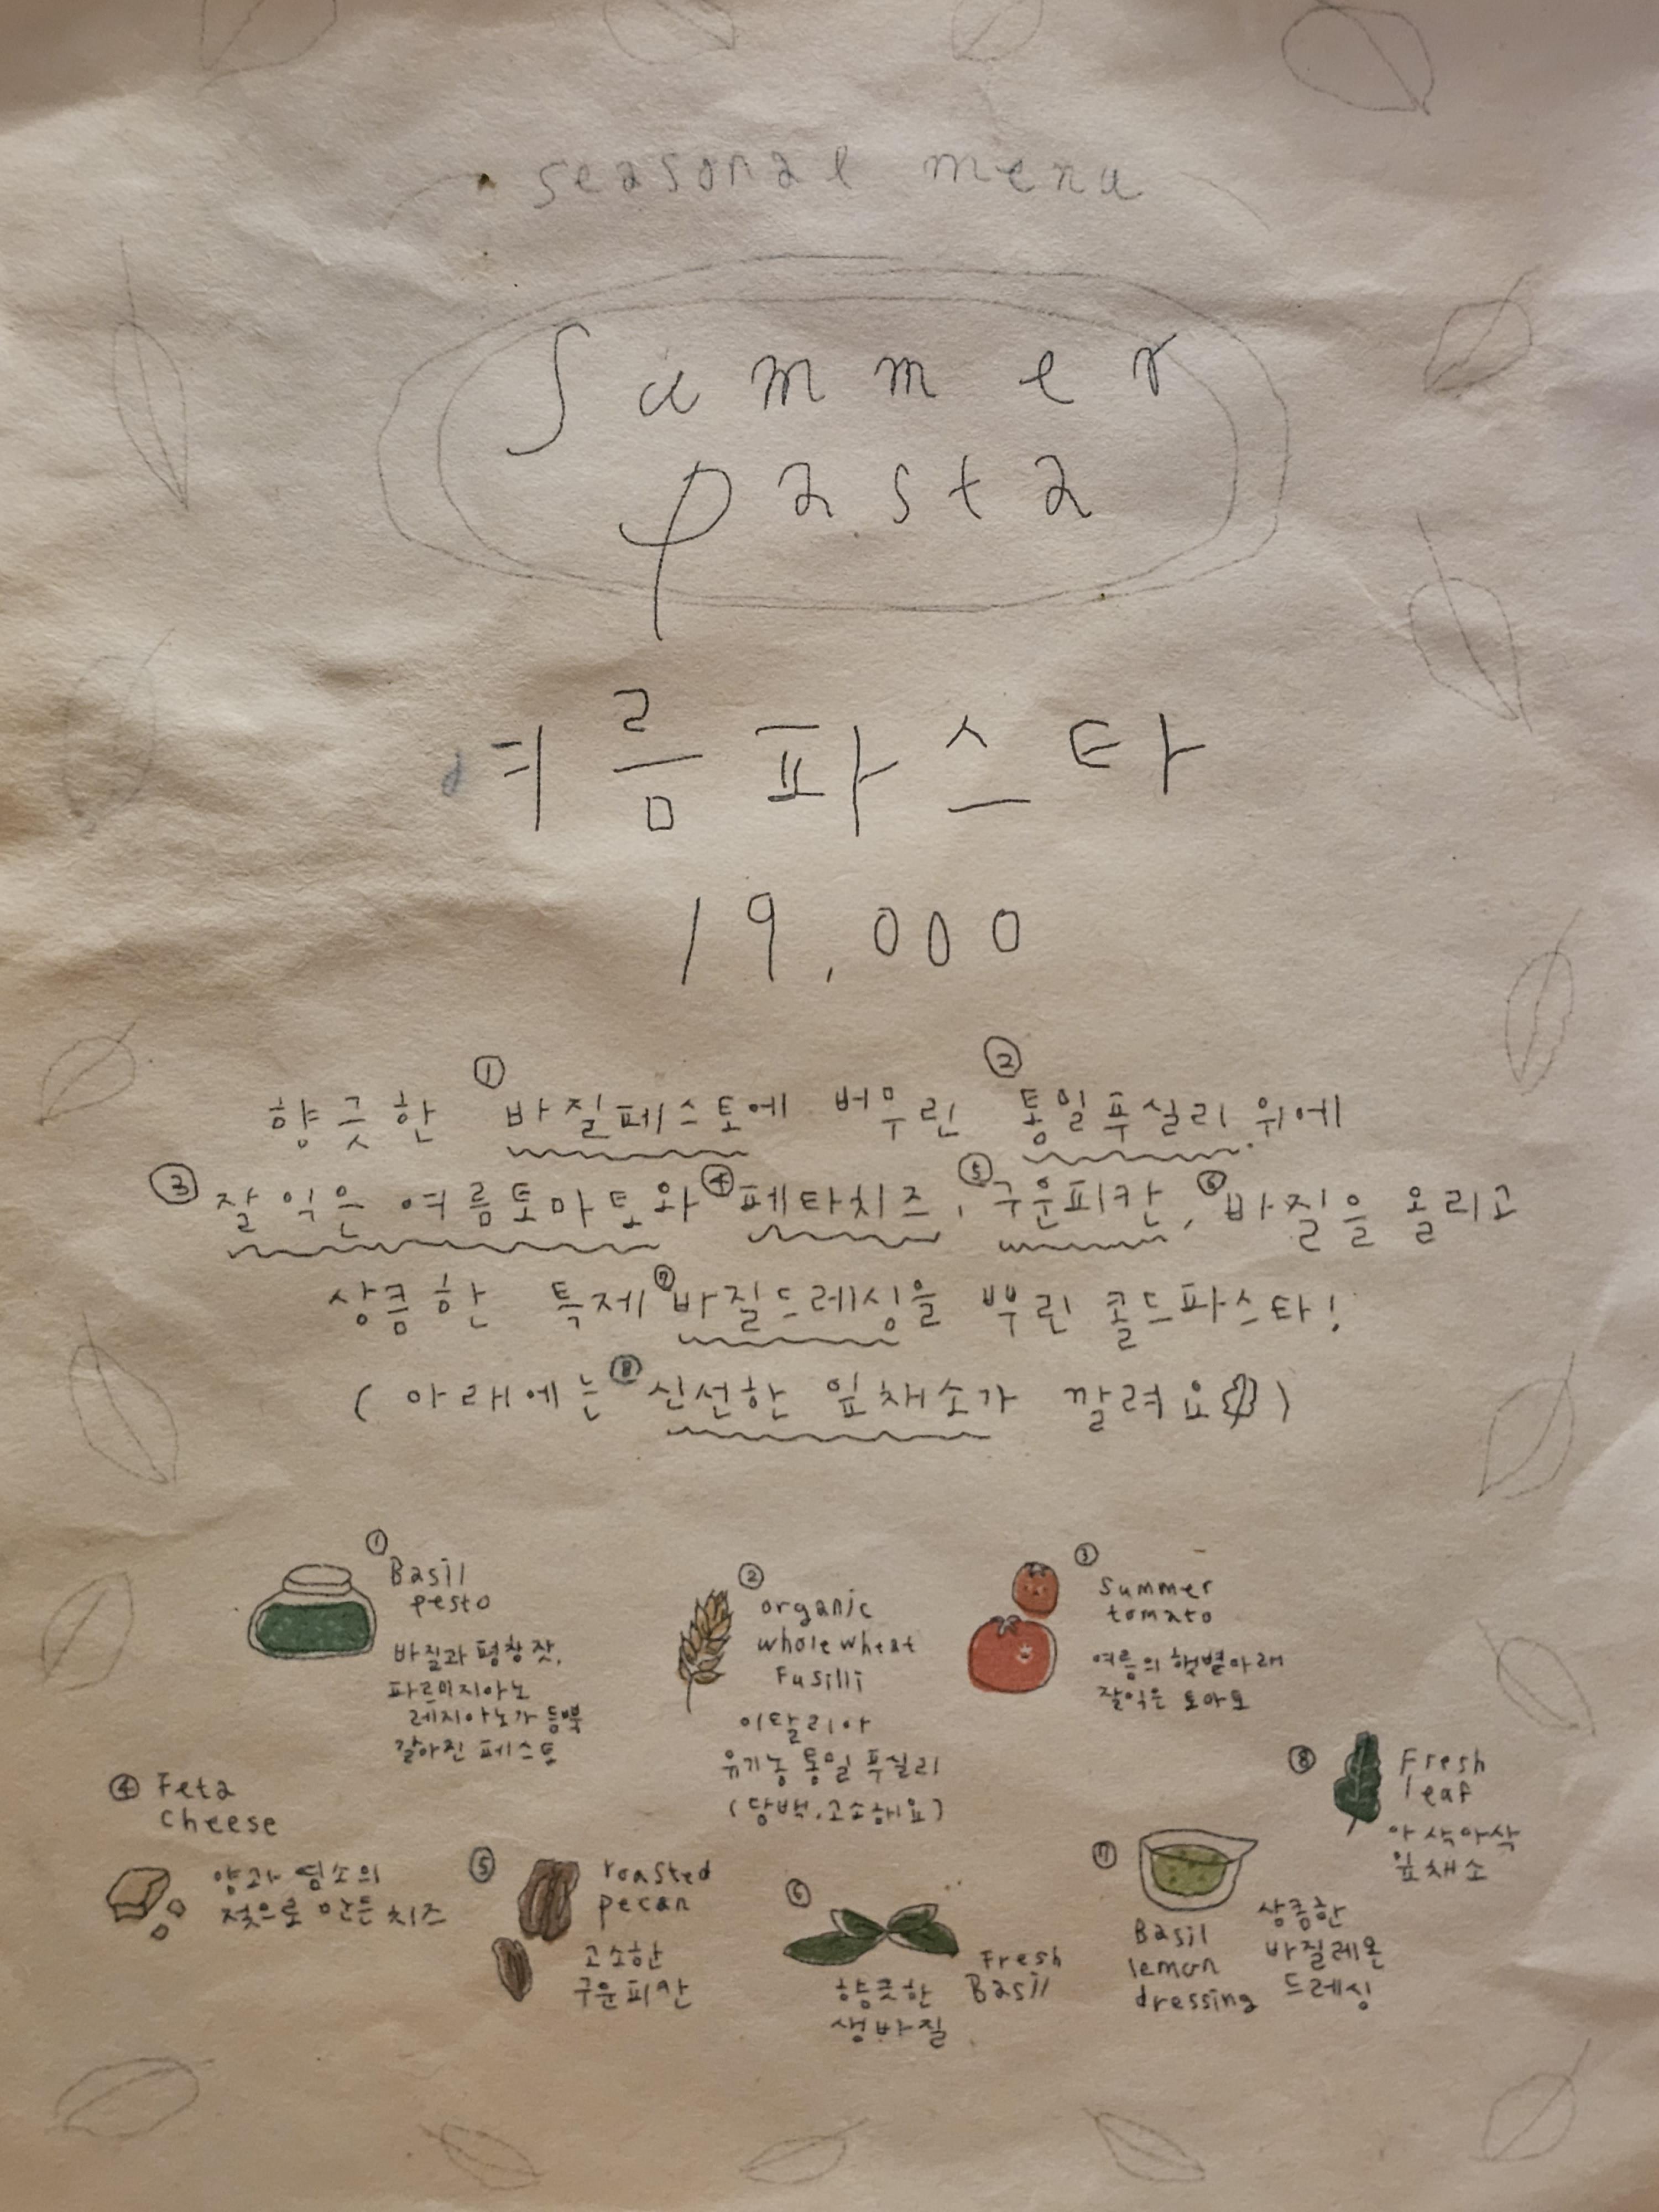 seasonal menu
Summer
pasta
여름파스타
19,000
향긋한 ①바질페스토에 버무린 ②통밀푸실리 위에
③잘 익은 여름토마토와 ④페타치즈, ⑤구운피칸, ⑥바질을 올리고
상큼한 특제 ⑦바질드레싱을 뿌린 콜드파스타!
(아래에는 ⑧신선한 잎채소가 깔려요)
①
Basil
pesto
바질과 평창잣,
파르미지아노
레지아노가 듬뿍
갈아진 페스토
②
organic
whole wheat
Fusilli
이탈리아
유기농 통밀 푸실리
(담백, 고소해요)
③
Summer
tomato
여름의 햇볕아래
잘익은 토마토
④ Feta
cheese
양과 염소의
젖으로 만든 치즈
⑤ roasted
pecan
고소한
구운피칸
⑥
Fresh
Basil
향긋한
생바질
⑦
Basil
lemon
dressing
상큼한
바질레몬
드레싱
⑧ Fresh
leaf
아삭아삭
잎채소